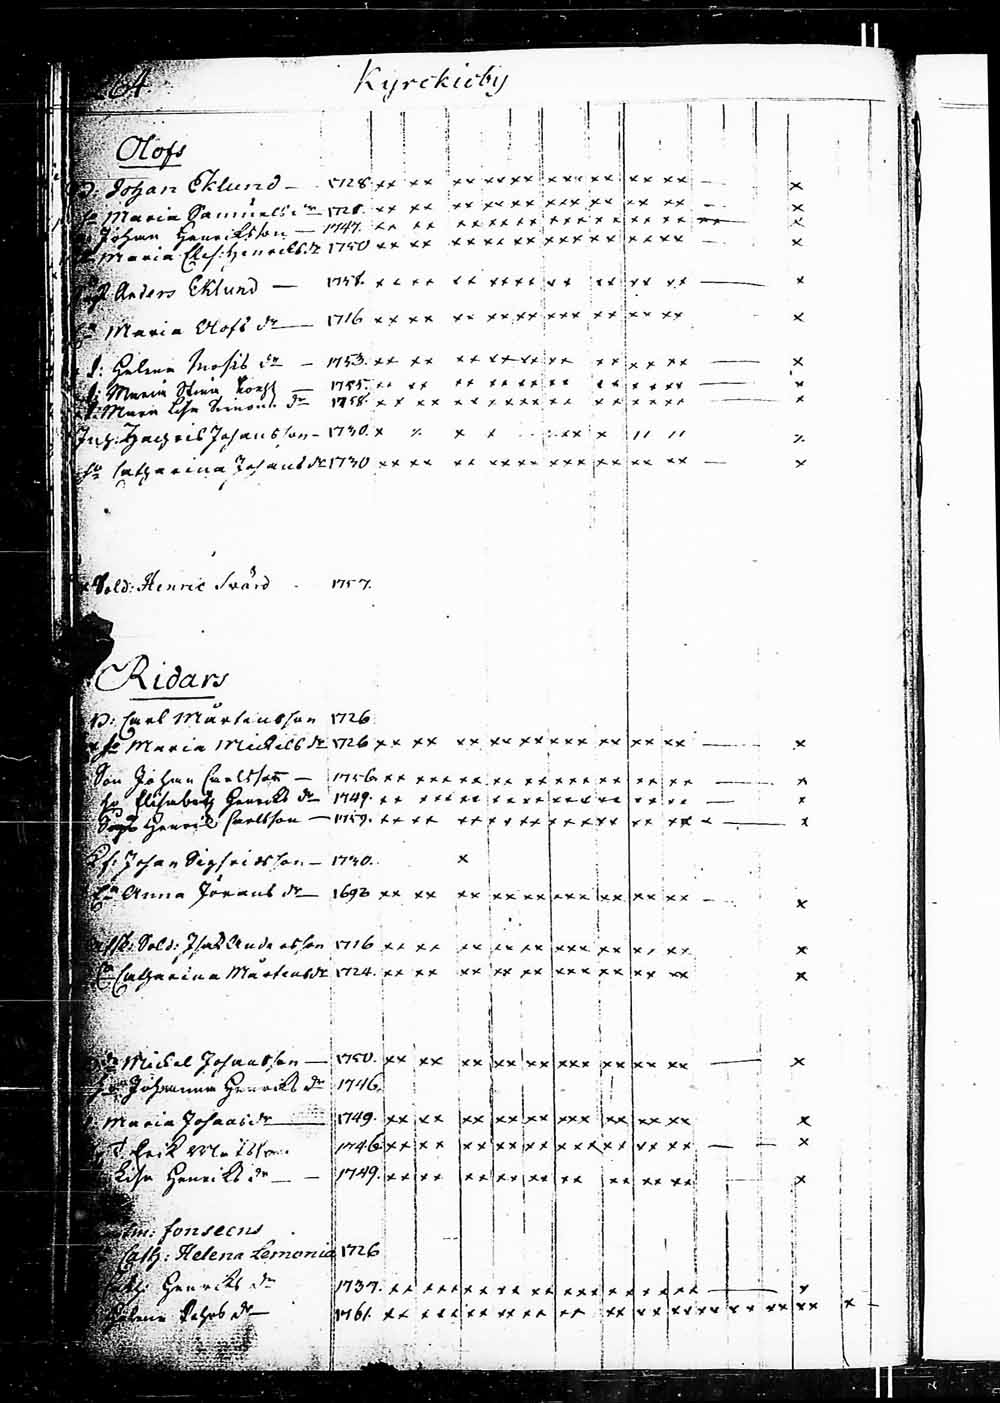 64 Kyrckioby
Olofs
D: Johan Eklund — 1728 xx xx xx xxxx xxx xx xx xx — x
Maria Samuels dr 1728. xx xx xx xxxx xxx xx xx xx — x
Johan Henriksson — 1747. xx xx xx xxxx xxx xx xx xx x
Maria Henriks dr 1750 xx xx xx xxxx xxx xx xx xx — x
Anders Eklund — 1758. xx xx xx xxxx xx xx xx xx — x
Maria Olofs dr — 1716 xx xx xx xxxx xxx xx xx xx x
Helena Mosis dr — 1753. xx xx xx xxxx xx xx xx xx — x
Maria Stina — 1755. xx xx xx xxxx xx xx xx xx — x
Maria Lisa Simons dr 1758. xx xx xx xxxx xx xx xx xx x
Inh: Zachris Johansson — 1730. x x x x xx x x
ho Catharina Johans dr 1730 xx xx xx xxxx xxx xx xx xx — x
Sold: Henric Svärd 1757.
Ridars
D: Carl Mårtensson 1726
ho Maria Mickels dr 1726 xx xx xx xxxx xxx xx xx xx — x
Son Johan Carlsson — 1756 xx xxx xx xxxx xxx xx xx xx — x
ho Elisabeth Henriks dr 1749. xx xxx xx xxxx xxx xx xx xx — x
Henric Carlsson — 1759. xx xx xx xxxx xxx xx xx xx x — x
Johan Sigfridsson — 1730. x
Anna Jörans dr — 1692 xx xx xx xxxx xxx xx xx xx — x
Sold: Isak Andersson 1716 xx xx xx xxxx xxx xx xx xx x
Catharina Mårtens dr 1724. xx xx xx xxxx xxx xx xx xx x
Mickel Johansson — 1750. xx xx xx xxxx xxx xx xx xx — x
Johanna Henriks dr 1746.
Maria Johans dr — 1749. xx xx xx xxxx xxx xx xx xx x
Erik 1746 xx xx xx xxxx xxx xx xx xx — — x
Lisa Henriks dr — 1749. xx xx xx xxxx xx xx xx xx x
fonsecus
Cath: Helena Lemonia 1726
Henriks dr 1737. xx xxx xx xxxx xxx xx xx xx — x
Helena dr — 1761. xx xxx xx xxxx xx xx xx xx xx xx xx x —